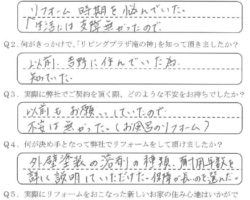 リフォーム時期を悩んでいた。
生活には支障無かったので
Q2. 何がきっかけで、「リビングプラザ滝の神」を知って頂きましたか？
以前、吉野に住んでいた為
知っていた。
Q3. 実際に弊社でご契約を頂く間、どのような不安をお持ちでしたか？
以前もお願いしていたので、
不安は無かった。(お風呂のリフォーム)
Q4. 何が決め手となって弊社でリフォームをして頂けましたか？
外壁塗料の溶剤の種類、耐用年数を
詳しく説明していただけた。保障が長いのを選んだ。
Q5. 実際にリフォームをおこなった新しいお家の住み心地はいかがで